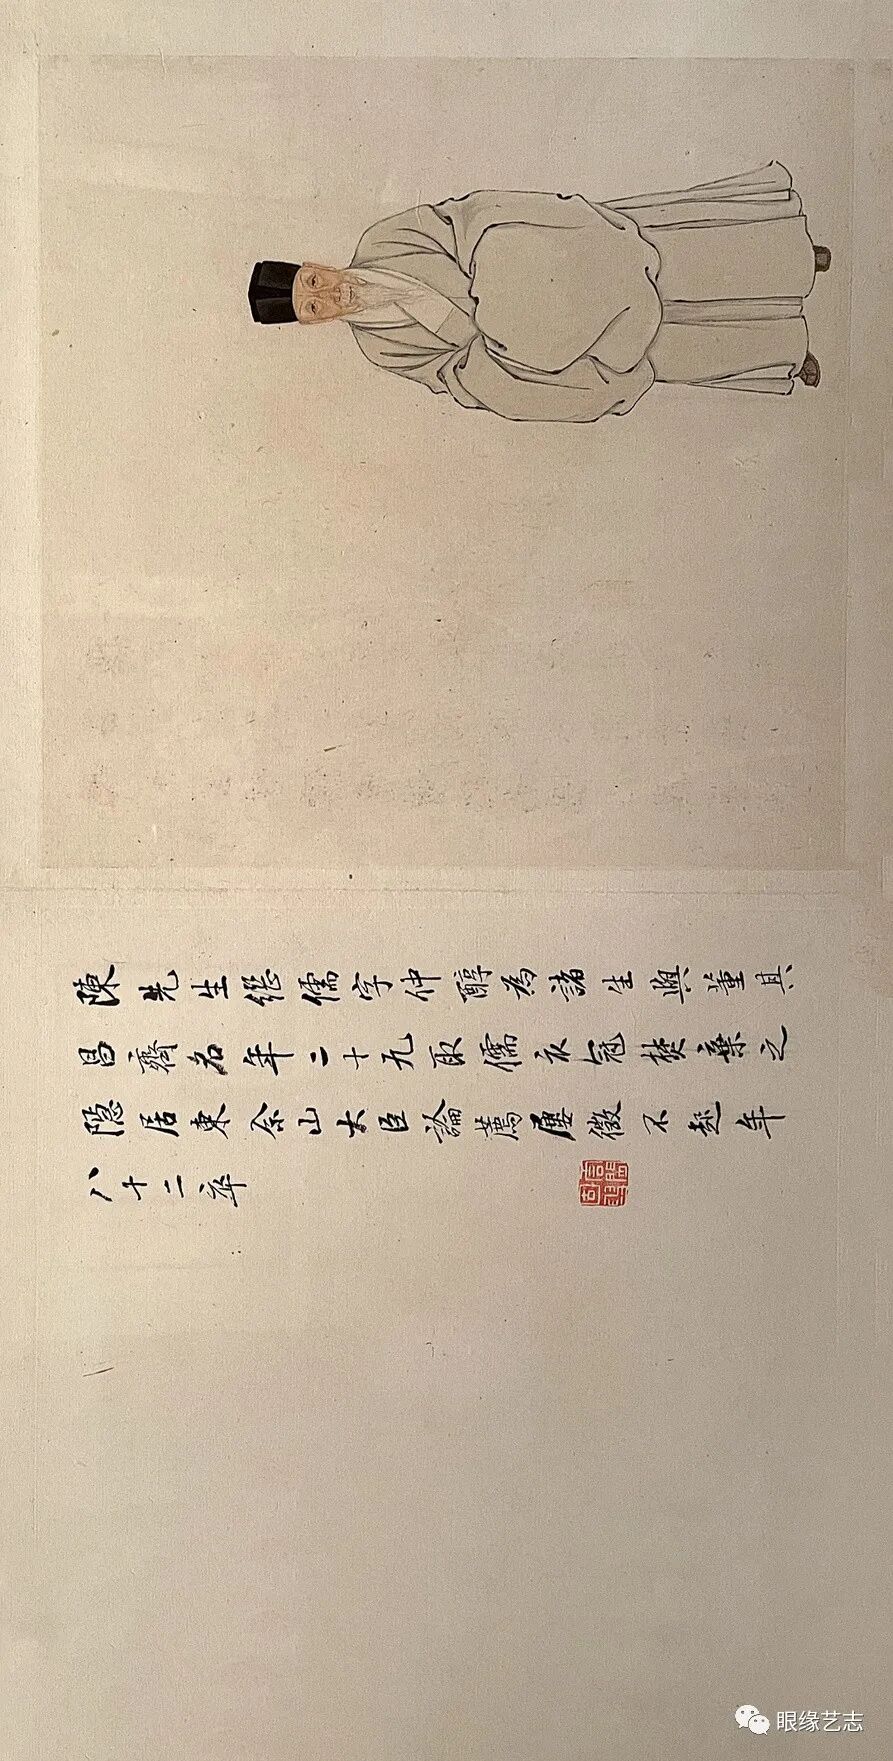 陳先生繼儒字仲醇為諸生與董其
昌齊名年二十九取儒衣冠焚棄之
隱居東佘山大臣論薦屢徵不起年
八十二卒
眼缘艺志